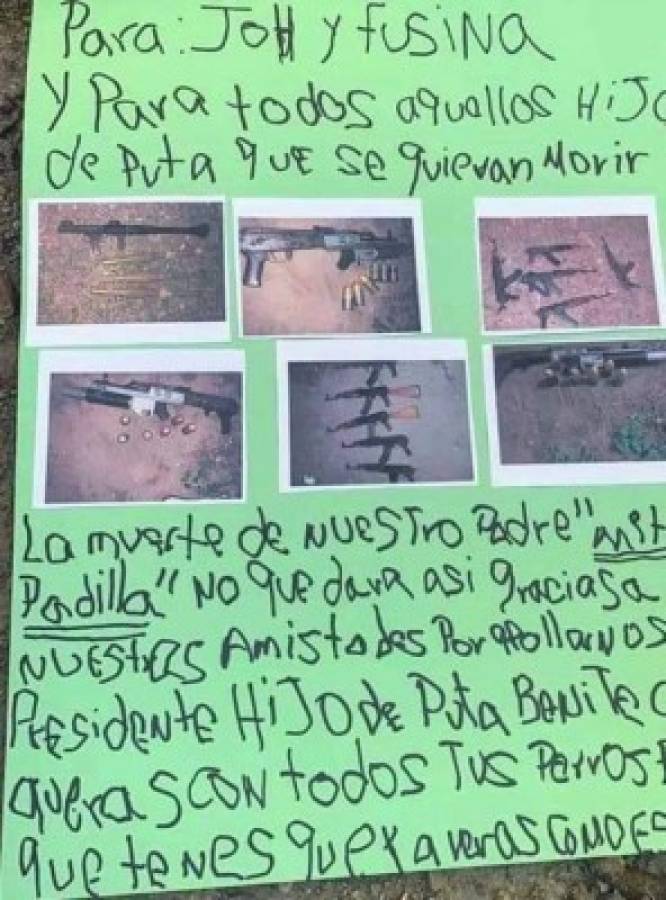 Para: JOH y fusina
y Para todos aquellos HiJo
de Puta que se quievan Morir
La muerte de NUESTro Padre "mit
Padilla" NO que dara asi graciasa
NUESTRas Amistades Por apollarNOS
PresidENTE HIJO de Puta BENITE
queras CON todos Tus Perros
que teNES que ya veras COMO ES